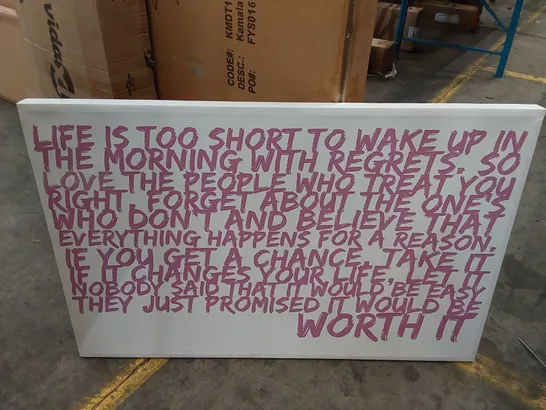 vida
CODE#: KMDT1
DESC.: Kamala
PO#: FYS016
LIFE IS TOO SHORT TO WAKE UP IN
THE MORNING WITH REGRETS, SO
LOVE THE PEOPLE WHO TREAT YOU
RIGHT, FORGET ABOUT THE ONE'S
WHO DON'T AND BELIEVE THAT
EVERYTHING HAPPENS FOR A REASON.
IF YOU GET A CHANCE, TAKE IT.
IF IT CHANGES YOUR LIFE, LET IT
NOBODY SAID THAT IT WOULD BE EASY
THEY JUST PROMISED IT WOULD BE
WORTH IT